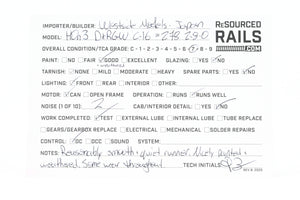 IMPORTER/BUILDER: Westside Models - Japan
RESOURCED RAILS .COM
MODEL: HOn3 D&RGW C-16 #278 2-8-0
OVERALL CONDITION/TCA GRADE: C - 1 - 2 - 3 - 4 - 5 - 6 - 7 - 8 - 9
PAINT: NO FAIR GOOD EXCELLENT GLAZING: YES NO
weathered
TARNISH: NONE MILD MODERATE HEAVY SPARE PARTS: YES NO
LIGHTING: FRONT REAR INTERIOR OTHER:
MOTOR: CAN OPEN FRAME OPERATION: RUNS RUNS WELL
NOISE (1 OF 10) 2 CAB/INTERIOR DETAIL: YES NO
WORK COMPLETED: TEST EXTERNAL LUBE INTERNAL LUBE TUBE REPLACE
GEARS/GEARBOX REPLACE ELECTRICAL MECHANICAL SOLDER REPAIRS
CONTROL: DC DCC SOUND SYSTEM:
NOTES: Reasonably smooth + quiet runner. Nicely painted +
weathered. Some wear throughout. TECH INITIALS:
REV. 9, 2020